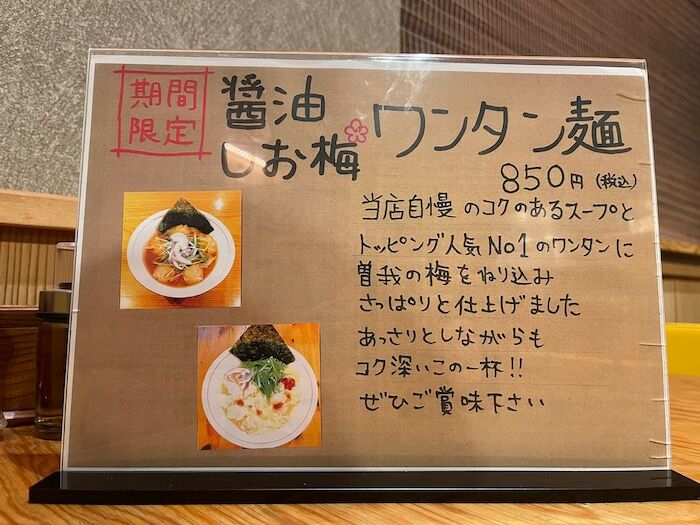 期間
限定
醤油
しお梅
ワンタン麺
850円 (税込)
当店自慢のコクのあるスープと
トッピング人気No1のワンタンに
曽我の梅をねり込み
さっぱりと仕上げました
あっさりとしながらも
コク深いこの一杯!!
ぜひご賞味下さい